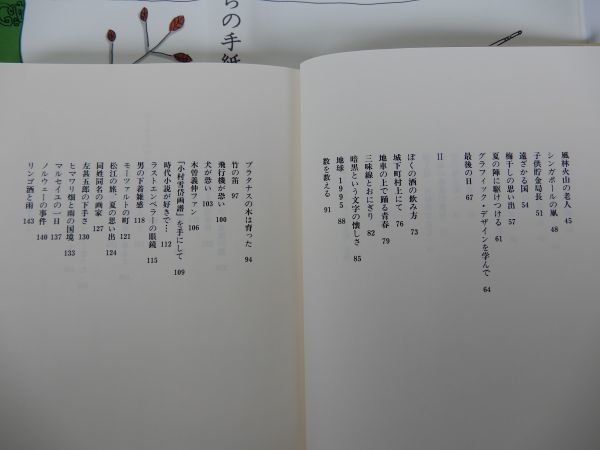 らの手紙
風林火山の老人 45
シンガポールの風 48
子供貯金局長 51
遠ざかる国 54
梅干しの思い出 57
夏の陣に駆けつける 61
グラフィック・デザインを学んで 64
最後の日 67
II
ぼくの酒の飲み方 73
城下町村上にて 76
地車の上で踊る青春 79
三味線とおにぎり 82
暗黒という文字の懐しさ 85
地球1995 88
数を数える 91
プラタナスの木は育った 94
竹の笛 97
飛行機が恐い 100
犬が恐い 103
木曽義仲ファン 106
「小村雪岱画譜」を手にして 109
時代小説が好きで… 112
ラストエンペラーの眼鏡 115
男の下着雑感 118
モーツァルトの町 121
松江の旅、夏の思い出 124
同姓同名の画家 127
左甚五郎の下手さ 130
ヒマワリ畑と雨の国境 133
マルセイユの一日 137
ノルウェーの事件 140
リンゴ酒と雨 143